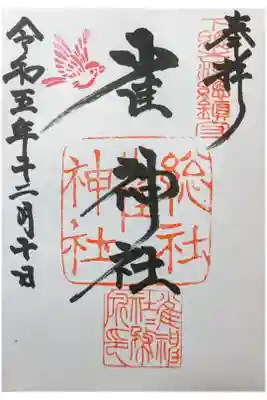 奉拝
雀神社
令和五年十二月十日
総社
神社
雀神
社務